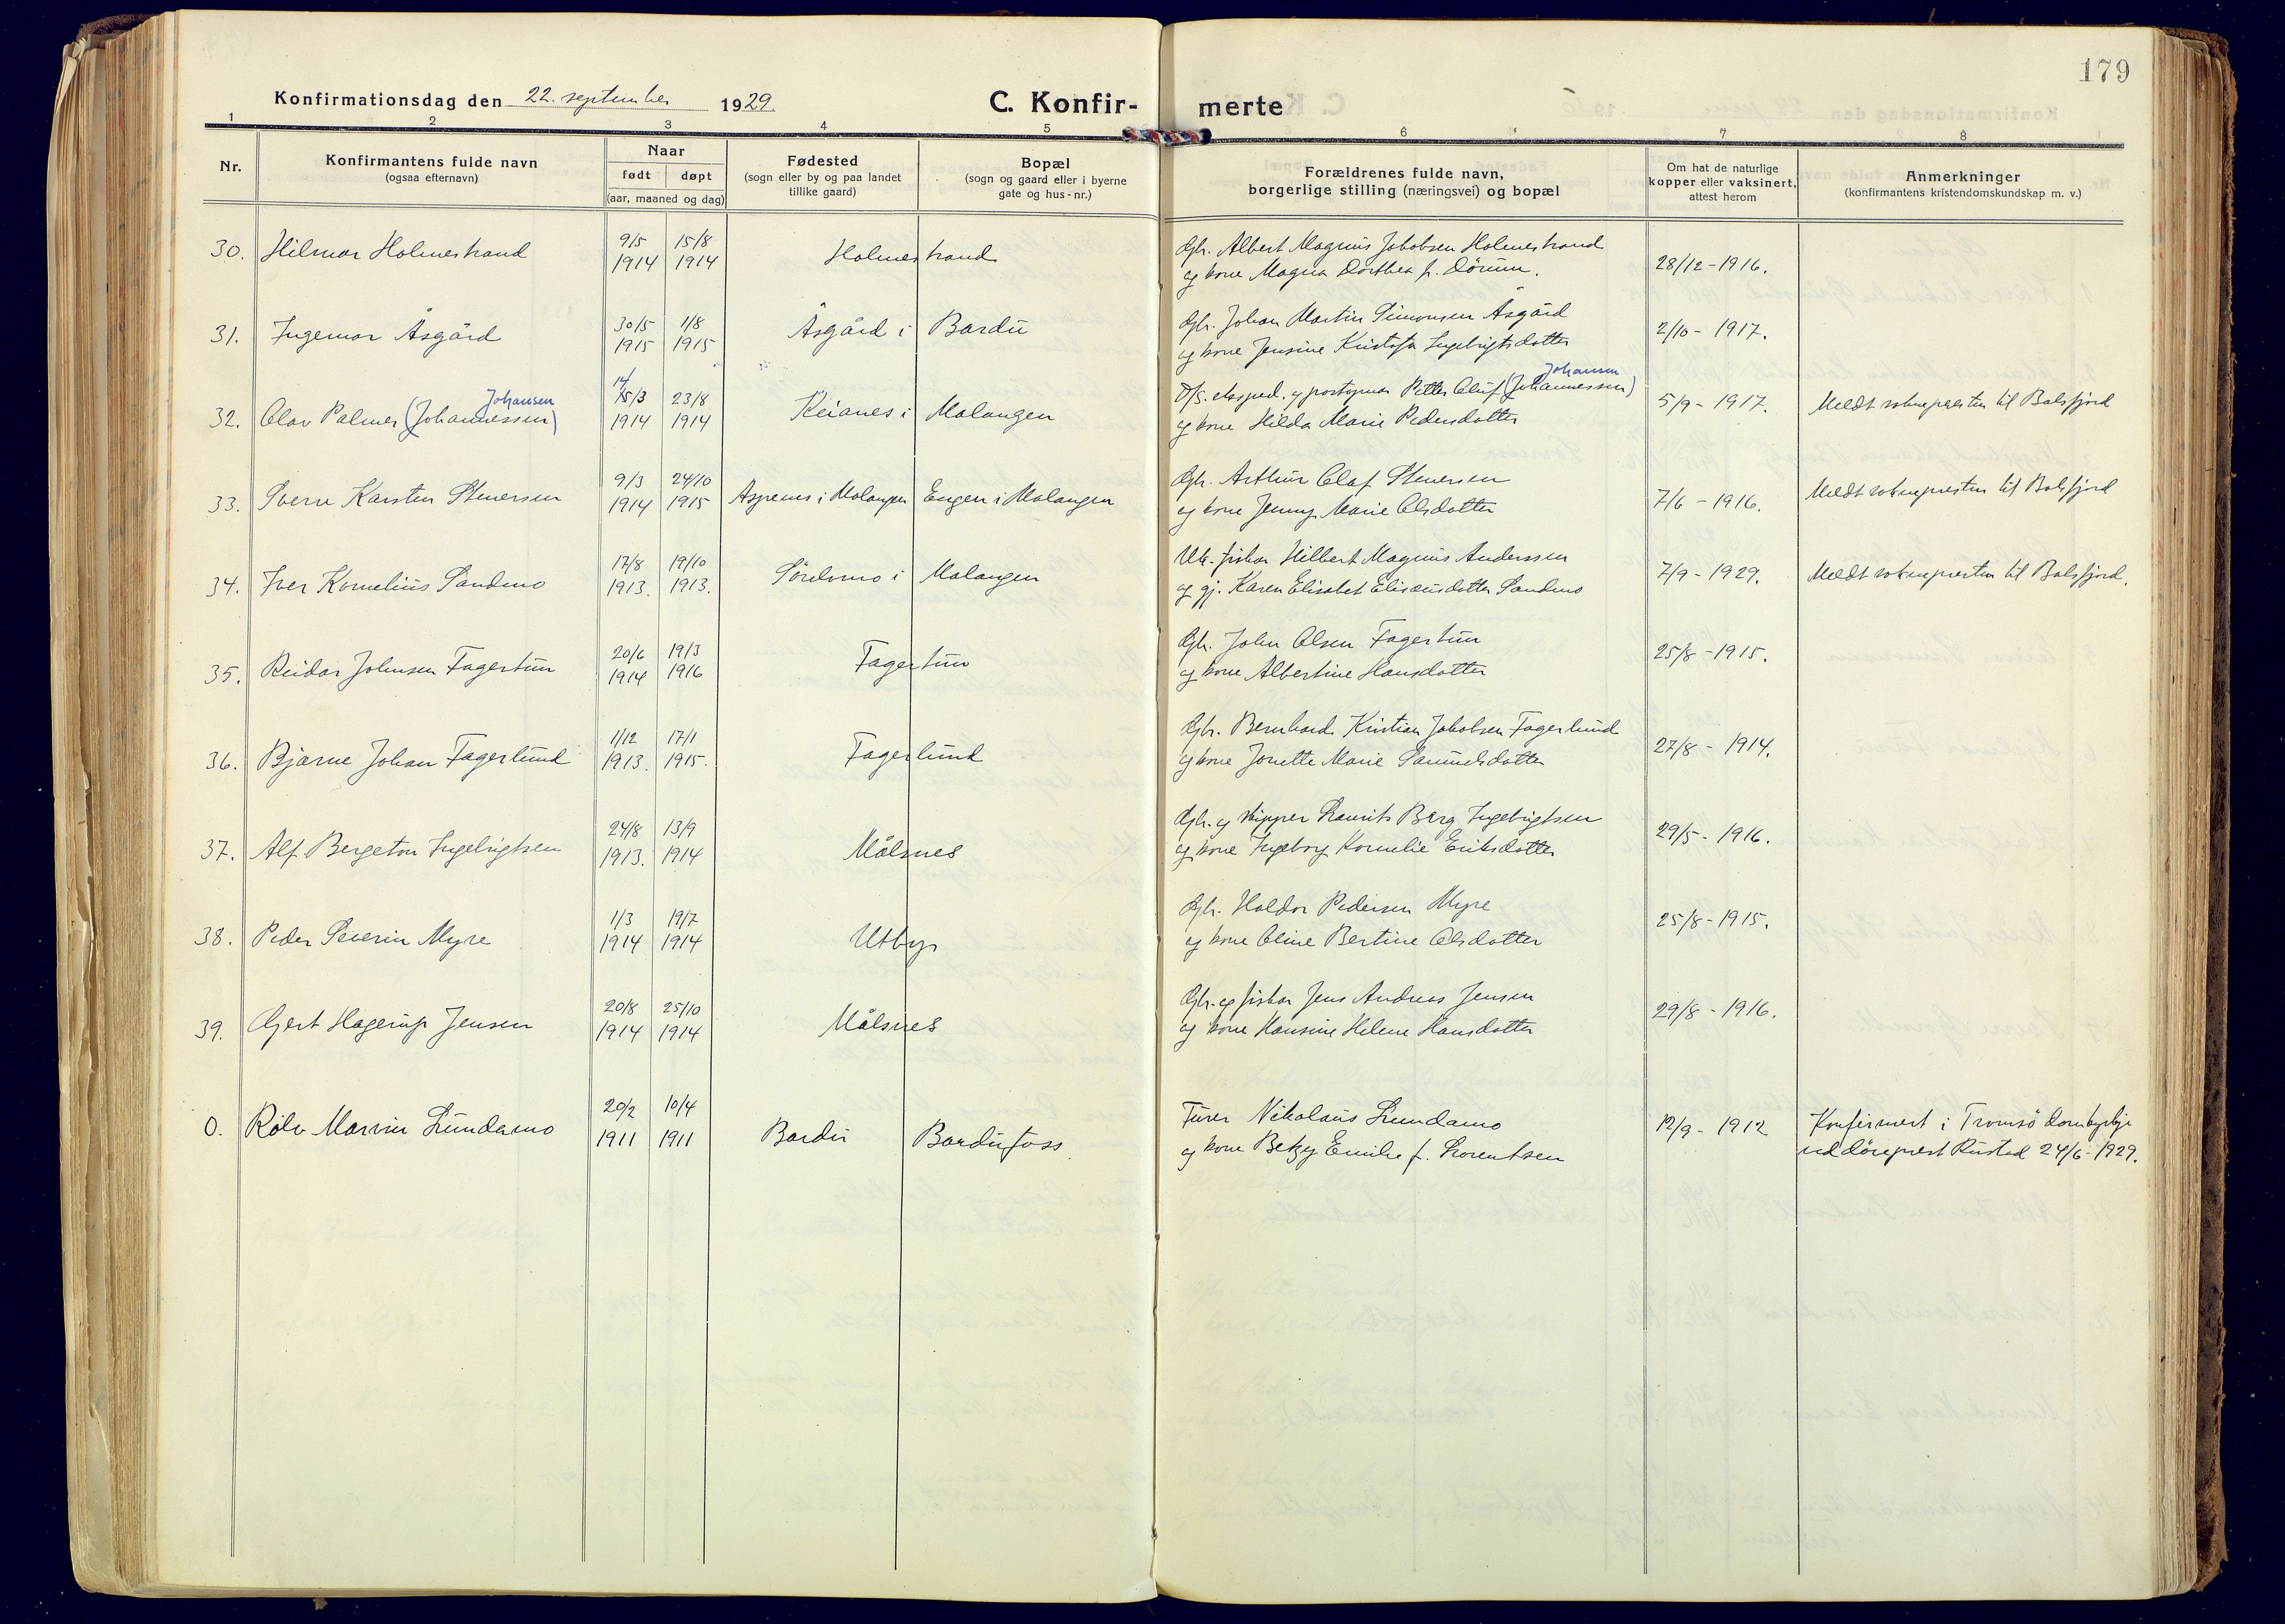 179
Konfirmationsdag den 22. september 1929. C. Konfir- merte
1 2 3 4 5 6 7 8
Nr.
Konfirmantens fulde navn
(ogsaa efternavn)
Naar
født døpt
(aar, maaned og dag)
Fødested
(sogn eller by og paa landet
tillike gaard)
Bopæl
(sogn og gaard eller i byerne
gate og hus-nr.)
Forældrenes fulde navn,
borgerlige stilling (næringsvei) og bopæl
Om hat de naturlige
kopper eller vaksinert,
attest herom
Anmerkninger
(konfirmantens kristendomskundskap m. v.)
30. Hilmar Holmestrand 9/5 1914 15/8 1914 Holmestrand
Gbr. Albert Magnus Jakobsen Holmestrand
og kone Magna Dorthea f. Dørum.
28/12-1916.
31. Ingemar Åsgård 30/5 1915 1/8 1915 Åsgård i Bardu
Gbr. Johan Martin Simonsen Åsgård
og kone Jensine Kristofa Ingebrigtsdotter
2/10 - 1917.
32. Olav Palmer (Johannessen) Johansen 14/ 15/3 1914 23/8 1914 Keianes i Malangen
D/S. eksped. og postopnar Petter Oluf (Johannessen) Johansen
og kone Hilda Marie Pedersdotter
5/9 - 1917. Meldt soknepresten til Balsfjord
33. Sverre Karsten Stenersen 9/3 1914 24/10 1915 Aspenes i Malangen Engen i Malangen
Gbr. Arthur Olaf Stenersen
og kone Jenny Marie Olsdotter
7/6 - 1916. Meldt soknepresten til Balsfjord
34. Iver Kornelius Sandmo 17/8 1913. 19/10 1913. Sørdomo i Malangen
Uk. fiskar Hilbert Magnus Anderssen
og gj. Karen Elisabet Elisæusdotter Sandmo
7/9 - 1929. Meldt soknepresten til Balsfjord.
35. Reidar Johnsen Fagertun 20/6 1914 19/3 1916 Fagertun
Gbr. John Olsen Fagertun
og kone Albertine Hansdotter
25/8 - 1915.
36. Bjarne Johan Fagerlund 1/12 1913. 17/1 1915. Fagerlund
Gbr. Bernhard Kristian Jakobsen Fagerlund
og kone Jonette Marie Samuelsdotter
27/8 - 1914.
37. Alf Bergeton Ingebrigtsen 24/8 1913. 13/9 1914 Målsnes
Gbr. og skipper Laurits Berg Ingebrigtsen
og kone Ingeborg Kornelie Eriksdotter
29/5 - 1916.
38. Peder Severin Myre 1/3 1914 19/7 1914 Utby
Gbr. Haldor Pedersen Myre
og kone Oline Bertine Olsdotter
25/8 - 1915.
39. Gjert Hagerup Jensen 20/8 1914 25/10 1914 Målsnes
Gbr. og fiskar Jens Andreas Jensen
og kone Hansine Helene Hansdotter
29/8 - 1916.
0. Rolv Marvin Lundamo 20/2 1911 10/4 1911 Bardu Bardufoss
Furer Nikolaus Lundamo
og kone Betzy Emilie f. Lorentsen
12/9 - 1912 Konfirmert i Tromsö domkyrkje
ved döveprest Rustad 24/6-1929.